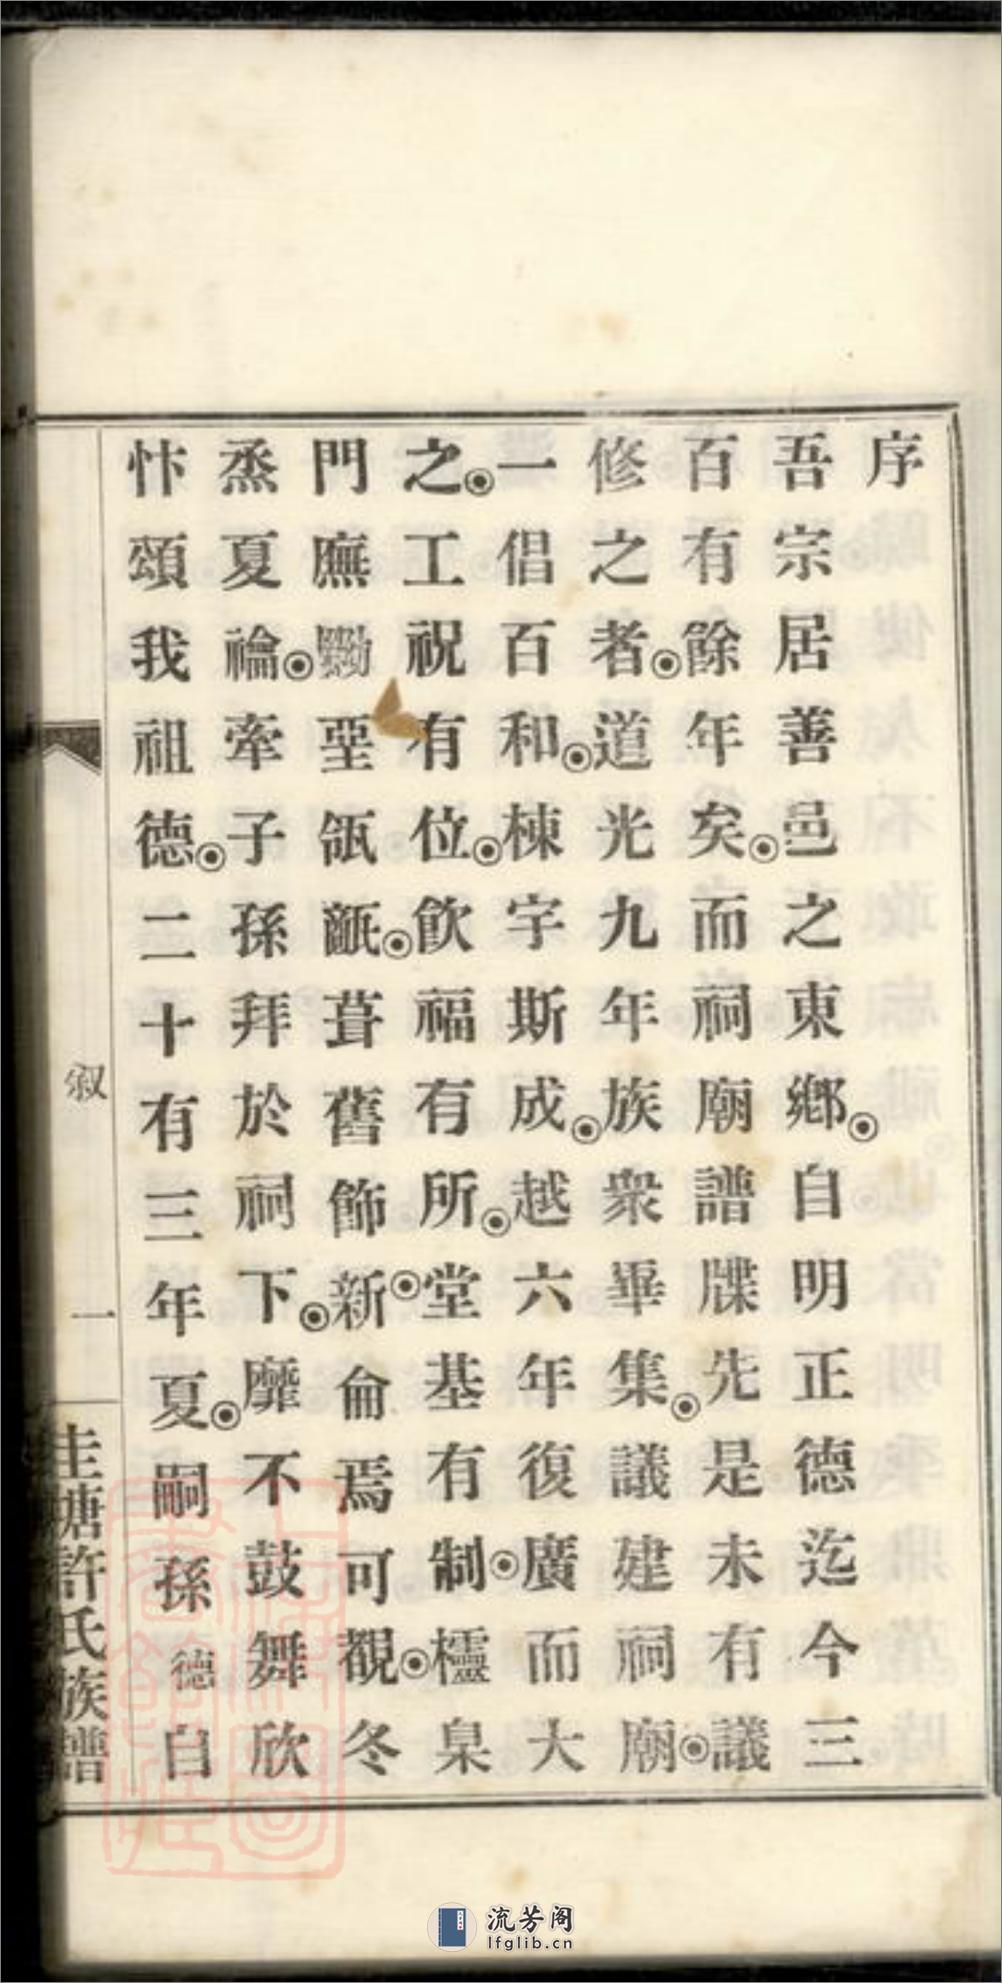 序
吾宗居善邑之東鄉自明正德迄今三
百有餘年矣而祠廟譜牒先是未有議
修之者道光九年族衆畢集議建祠廟
一倡百和棟宇斯成越六年復廣而大
之工祝有位飲福有所堂基有制櫺臬
門廡黝堊瓴甋葺舊飾新侖焉可觀冬
烝夏禴牽子孫拜於祠下靡不鼓舞欣
忭頌我祖德二十有三年夏嗣孫德白
叙
一
圭塘許氏族譜
流芳阁
lfglib.cn